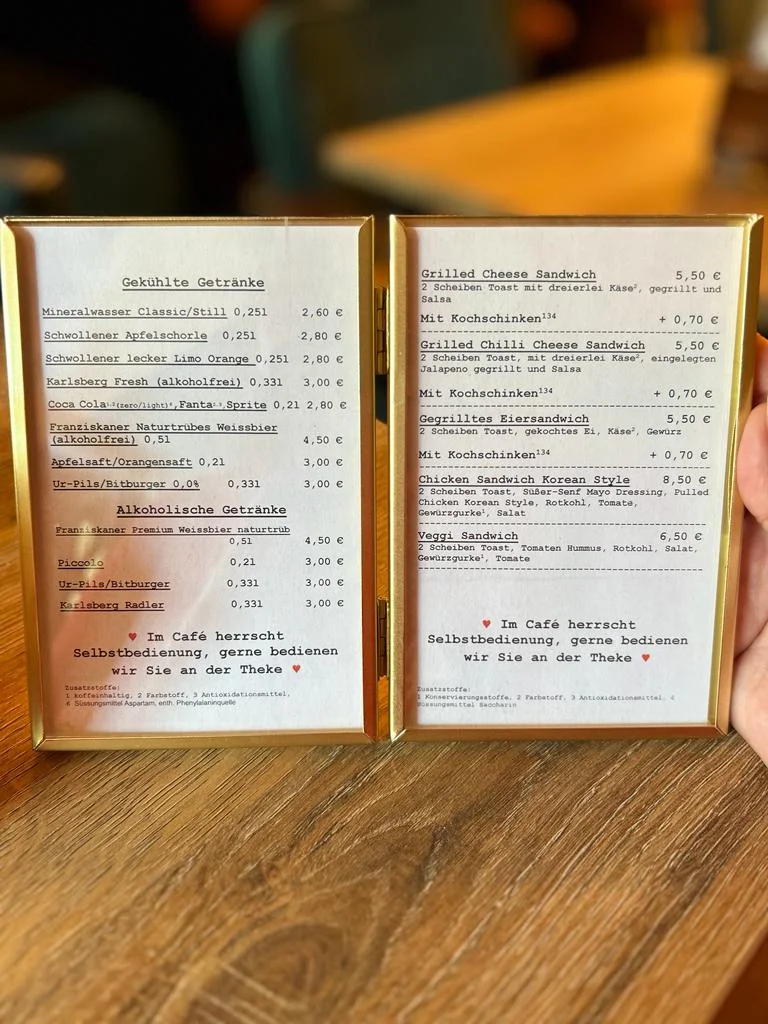 Gekühlte Getränke
Mineralwasser Classic/Still 0,25l 2,60 €
Schwollener Apfelschorle 0,25l 2,80 €
Schwollener lecker Limo Orange 0,25l 2,80 €
Karlsberg Fresh (alkoholfrei) 0,33l 3,00 €
Coca Cola¹·²(zero/light)⁴,Fanta²·³,Sprite 0,2l 2,80 €
Franziskaner Naturtrübes Weissbier
(alkoholfrei) 0,5l 4,50 €
Apfelsaft/Orangensaft 0,2l 3,00 €
Ur-Pils/Bitburger 0,0% 0,33l 3,00 €
Alkoholische Getränke
Franziskaner Premium Weissbier naturtrüb
0,5l 4,50 €
Piccolo 0,2l 3,00 €
Ur-Pils/Bitburger 0,33l 3,00 €
Karlsberg Radler 0,33l 3,00 €
♥ Im Café herrscht
Selbstbedienung, gerne bedienen
wir Sie an der Theke ♥
Zusatzstoffe:
1 koffeinhaltig, 2 Farbstoff, 3 Antioxidationsmittel,
4 Süssungsmittel Aspartam, enth. Phenylalaninquelle
Grilled Cheese Sandwich 5,50 €
2 Scheiben Toast mit dreierlei Käse², gegrillt und
Salsa
Mit Kochschinken¹³⁴ + 0,70 €
Grilled Chilli Cheese Sandwich 5,50 €
2 Scheiben Toast, mit dreierlei Käse², eingelegten
Jalapeno gegrillt und Salsa
Mit Kochschinken¹³⁴ + 0,70 €
Gegrilltes Eiersandwich 5,50 €
2 Scheiben Toast, gekochtes Ei, Käse², Gewürz
Mit Kochschinken¹³⁴ + 0,70 €
Chicken Sandwich Korean Style 8,50 €
2 Scheiben Toast, Süßer-Senf Mayo Dressing, Pulled
Chicken Korean Style, Rotkohl, Tomate,
Gewürzgurke¹, Salat
Veggi Sandwich 6,50 €
2 Scheiben Toast, Tomaten Hummus, Rotkohl, Salat,
Gewürzgurke¹, Tomate
♥ Im Café herrscht
Selbstbedienung, gerne bedienen
wir Sie an der Theke ♥
Zusatzstoffe:
1 Konservierungsstoffe, 2 Farbstoff, 3 Antioxidationsmittel, 4
Süssungsmittel Saccharin